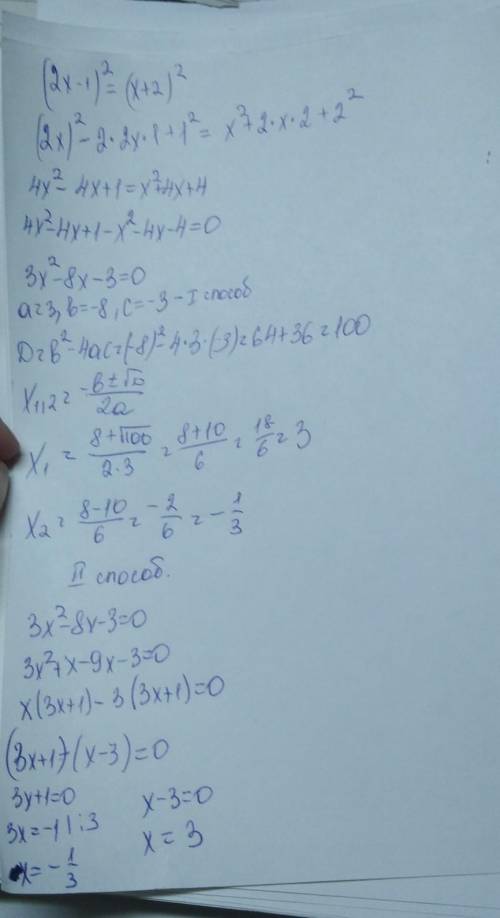 (2x-1)² = (x+2)²
(2x)² - 2·2x·1 + 1² = x² + 2·x·2 + 2²
4x² - 4x + 1 = x² + 4x + 4
4x² - 4x + 1 - x² - 4x - 4 = 0
3x² - 8x - 3 = 0
a = 3, b = -8, c = -3 - I способ
D = b² - 4ac = (-8)² - 4·3·(-3) = 64 + 36 = 100
x₁,₂ = (-b ± √D)/(2a)
x₁ = (8 + √100)/(2·3) = (8 + 10)/6 = 18/6 = 3
x₂ = (8 - 10)/6 = -2/6 = -1/3
II способ.
3x² - 8x - 3 = 0
3x² + x - 9x - 3 = 0
x(3x+1) - 3(3x+1) = 0
(3x+1)·(x-3) = 0
3x+1=0 x-3=0
3x = -1 | :3 x = 3
x = -1/3